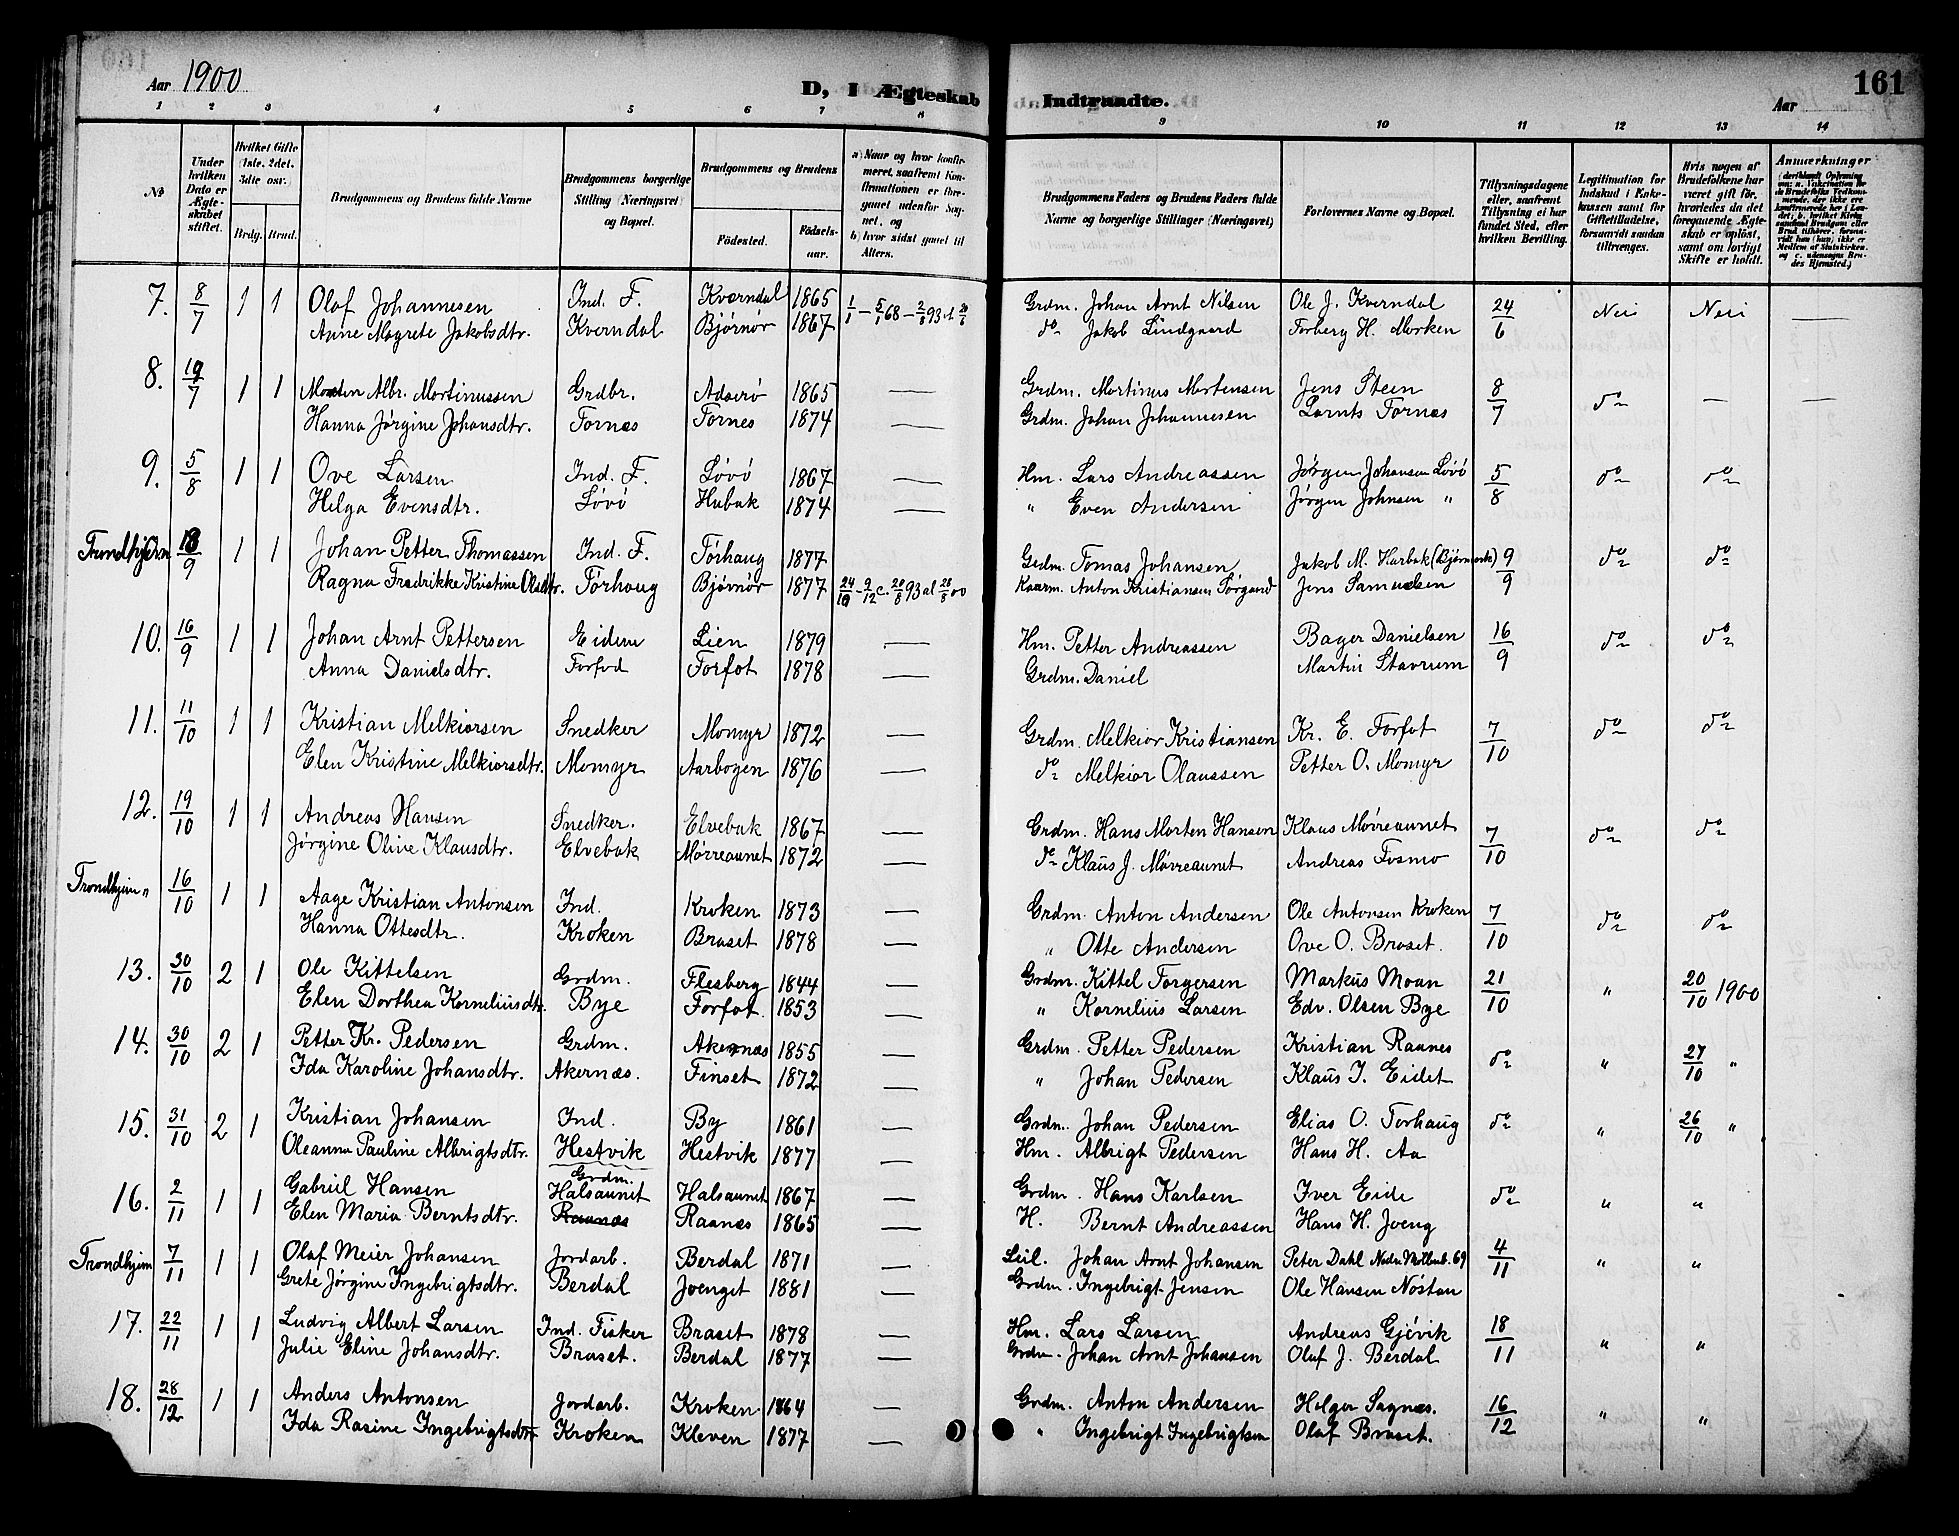 Aar 1900
D, I Ægteskab Indtraadte.
Aar
161
1 2 3 4 5 6 7 8 9 10 11 12 13 14
No
Under hvilken Dato er Ægteskabet stiftet.
Hvilket Gifte (1ste, 2det, 3die osv.
Brdg. Brud.
Brudgommens og Brudens fulde Navne
Brudgommens borgerlige Stilling (Næringsvei) og Bopæl.
Brudgommens og Brudens
Fødested.
Fødselsaar.
a) Naar og hvor konfirmeret, saafremt Konfirmationen er foregaaet udenfor Sognet, og
b) hvor sidst gaaet til Alters.
Brudgommens Faders og Brudens Faders fulde Navne og borgerlige Stillinger (Næringsvei)
Forlovernes Navne og Bopæl.
Tillysningsdagene eller, saafremt Tillysning ei har fundet Sted, efter hvilken Bevilling.
Legitimation for Indskud i Enkekassen samt for Giftetilladelse, forsaavidt saadan tiltrænges.
Hvis nogen af Brudefolkene har været gift før, hvorledes da det foregaaende Ægteskab er opløst, samt om lovligt Skifte er holdt.
Anmærkninger
7. 8/7 1 1 Olaf Johannesen Ind. F. Kverndal 1865 Grdm. Johan Arnt Nilsen Ole J. Kverndal 24/6 Nei Nei
Anne Magrete Jakobsdtr. Kverndal Bjørnør 1867 do Jakob Lindgaard Torberg H. Morken
8. 19/7 1 1 Morten Albr. Martinussen Grdbr. Adserö 1865 — Grdm. Martinus Mortensen Jens Steen 8/7 do — —
Hanna Jørgine Johansdtr. Tornes Tornes 1874 — Grdm. Johan Johannesen Larnts Tornæs
9. 5/8 1 1 Ove Larsen Ind. F. Løvö 1867 — Hm. Lars Andreassen Jørgen Johansen Løvö 5/8 do do
Helga Evensdtr. Løvö Hubak 1874 — " Even Andersen Jørgen Johnsen "
Trondhjem 18/9 1 1 Johan Petter Thomassen Ind. F. Tørhaug 1877 Grdm. Tomas Johansen Jakob M. Harbak 9/9 do do
Ragna Fredrikke Kristine Olsdtr. Tørhaug Bjørnør 1877 Kaarm. Anton Kristiansen Jens Samuelsen
10. 16/9 1 1 Johan Arnt Pettersen Eidem Lien 1879 — Hm. Petter Andreassen Bager Danielsen 16/9 do do
Anna Danielsdtr. Forfod Forfot 1878 — Grdm. Daniel Martin Stavrum
11. 11/10 1 1 Kristian Melkiorsen Snedker Momyr 1872 — Grdm. Melkior Kristiansen Kr. E. Forfot 7/10 do do
Elen Kristine Melkiorsdtr. Momyr Aarbogen 1876 — do Melkior Olaussen Petter O. Momyr
12. 19/10 1 1 Andreas Hansen Snedker. Elvebak 1867 — Grdm. Hans Morten Hansen Klaus Møvreaunet 7/10 do do
Jørgine Oline Klausdtr. Elvebak Møvreaunet 1872 — do Klaus J. Møvreaunet Andreas Fosmo
Trondhjem " 16/10 1 1 Aage Kristian Antonsen Ind. Kroken 1873 — Grdm. Anton Andersen Ole Antonsen Kroken 7/10 do do
Hanna Ottesdtr. Kroken Braset 1878 — " Otte Andersen Ove O. Braset.
13. 30/10 2 1 Ole Kittelsen Grdm. Flesberg 1844 — Grdm. Kittel Torgersen Markus Moan 21/10 " 20/10 1900
Elen Dorthea Korneliusdtr. Bye Forfot. 1853 — " Kornelius Larsen Edv. Olsen Bye
14. 30/10 2 1 Petter Kr. Pedersen Grdm. Akernæs 1855 — Grdm. Petter Pedersen Kristian Raanes do " 27/10 "
Ida Karoline Johansdtr. Akernæs. Finset 1872 — " Johan Pedersen Klaus I. Eidet
15. 31/10 2 1 Kristian Johansen Ind. By 1861 — Grdm. Johan Pedersen Elias O. Torhaug do " 26/10 "
Oleanna Pauline Albrigtsdtr. Hestvik Hestvik 1877 — Hm. Albrigt Pedersen Hans H. Aa
16. 2/11 1 1 Gabriel Hansen Grdm. Halsaunet Halsaunet 1867 — Grdm. Hans Karlsen Iver Eide do " "
Elen Maria Berntsdtr. Raanæs Raanæs 1865 — H. Bernt Andreassen Hans H. Joeng
Trondhjem 7/11 1 1 Olaf Meier Johansen Jordarb. Berdal 1871 — Leil. Johan Arnt Johansen Peter Dahl Nedr. Møllenb. 69 4/11 " "
Grete Jørgine Ingebrigtsdtr. Berdal Joenget 1881 — Grdm. Ingebrigt Jensen Ole Hansen Nøstan
17. 22/11 1 1 Ludvig Albert Larsen Ind. Fisker Braset 1878 — Hm. Lars Larsen Andreas Gjøvik 18/11 " "
Julie Eline Johansdtr. Braset. Berdal 1877 — Grdm. Johan Arnt Johansen Olaf J. Berdal
18. 28/12 1 1 Anders Antonsen Jordarb. Kroken 1864 — Grdm. Anton Andersen Helger Sagnæs. 16/12 " "
Ida Rasine Ingebrigtsdtr Kroken Kleven 1877 — " Ingebrigt Ingebrigtsen Olaf Braset.